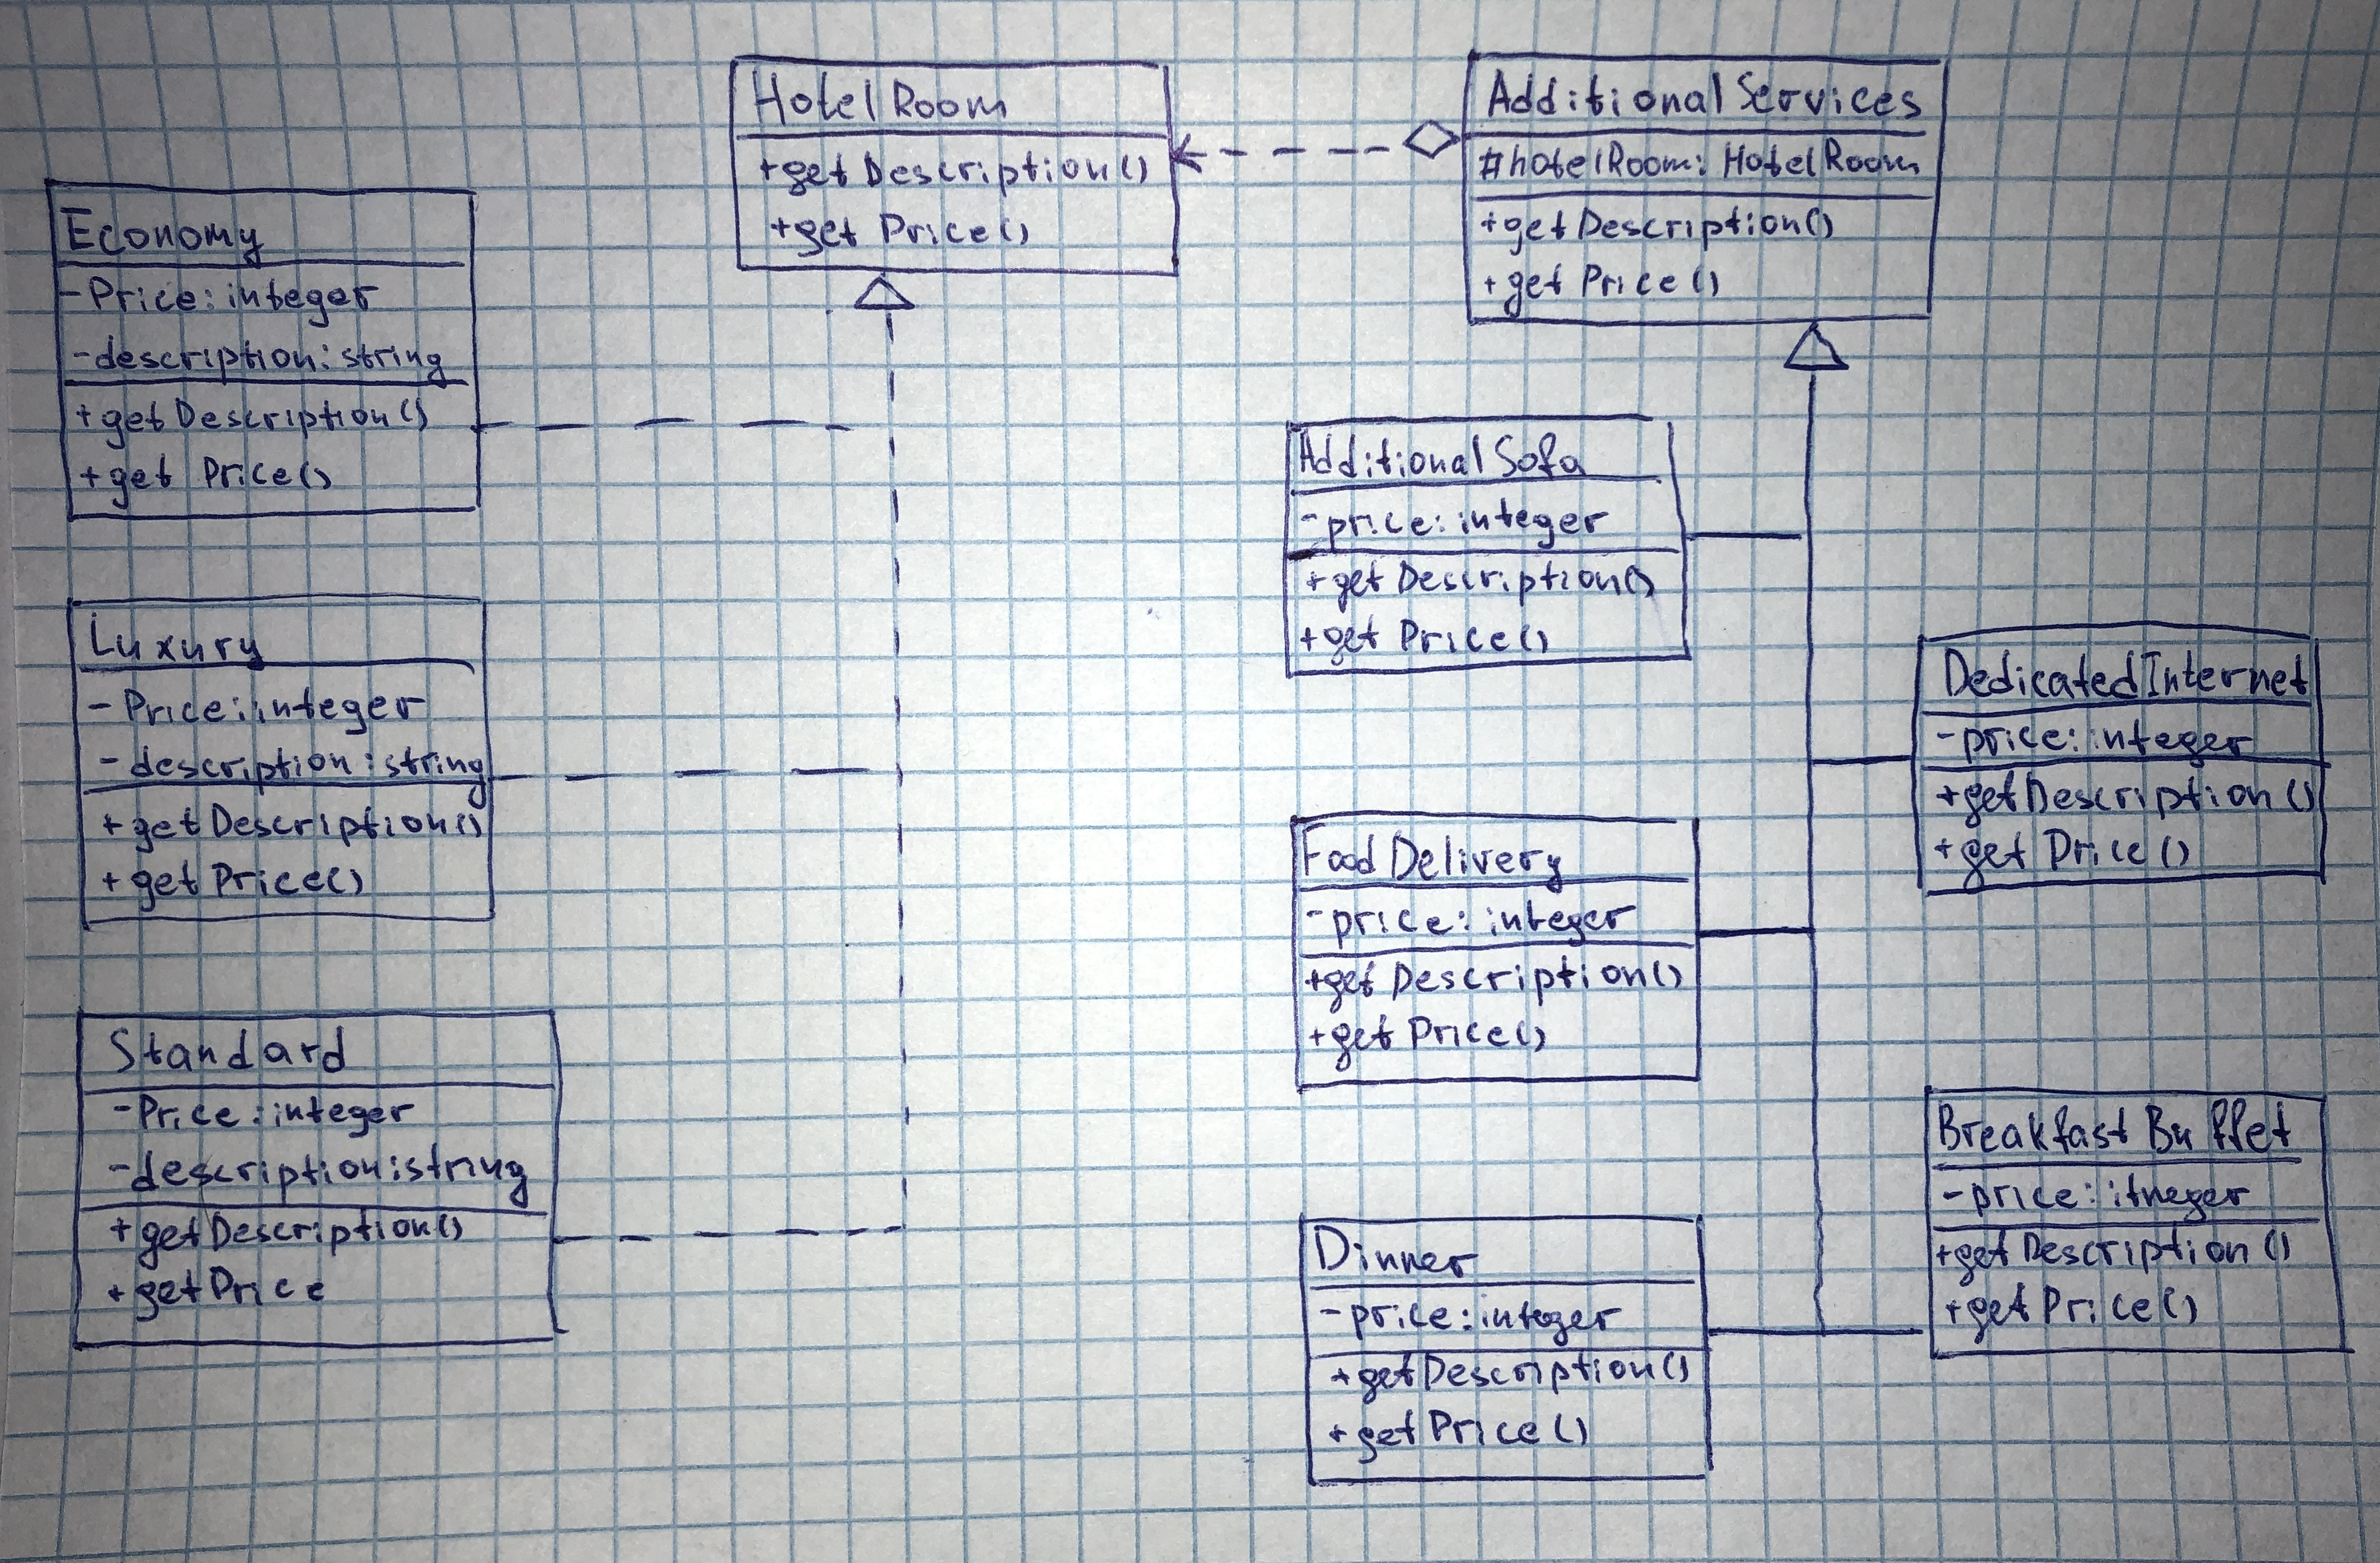 HotelRoom
+getDescription()
+get Price()
AdditionalServices
#hotelRoom: HotelRoom
+getDescription()
+get Price()
Economy
-Price: integer
-description: string
+getDescription()
+get Price()
AdditionalSofa
-price: integer
+getDescription()
+get Price()
Luxury
-Price: integer
-description: string
+getDescription()
+getPrice()
DedicatedInternet
-price: integer
+getDescription()
+get Price()
FoodDelivery
-price: integer
+getDescription()
+get Price()
Standard
-Price: integer
-description: string
+getDescription()
+getPrice
Breakfast Buffet
-price: itneger
+getDescription()
+getPrice()
Dinner
-price: integer
+getDescription()
+getPrice()